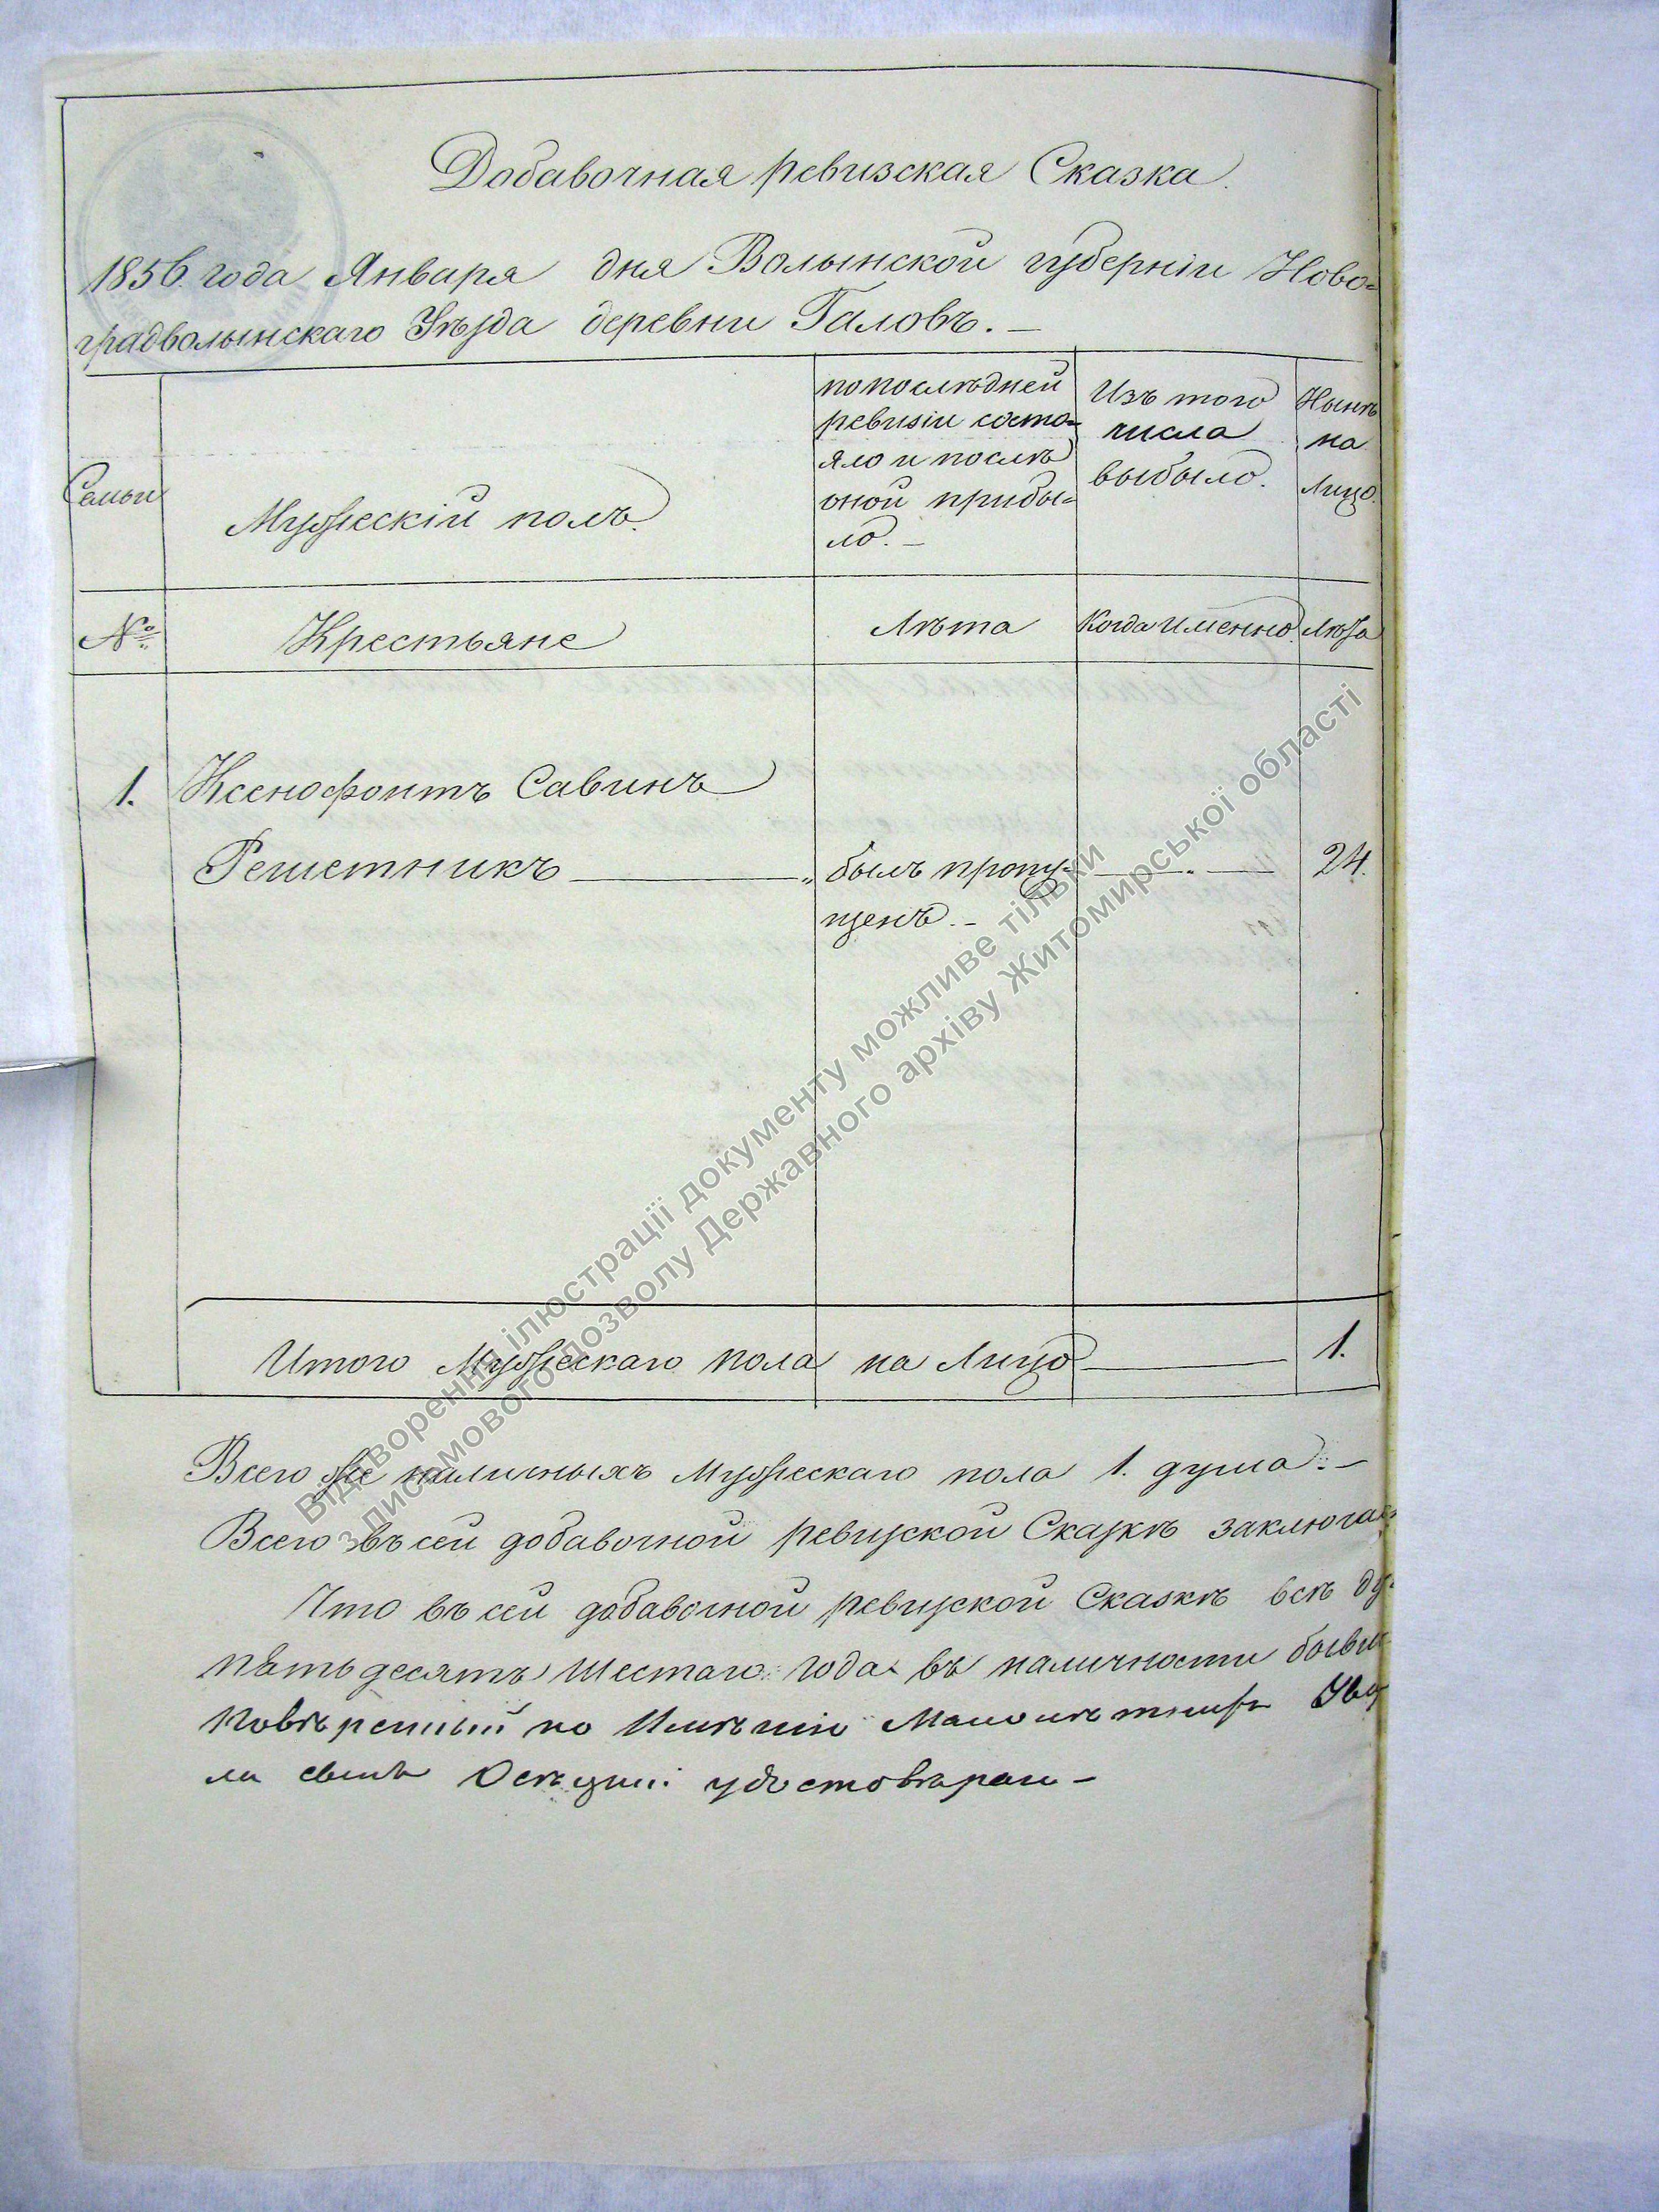 Добавочная ревизская Сказка.
1856 года Января дня Волынской губерніи Ново=
градволынскаго Уѣзда деревни Галовъ. —
Семьи
Мужескій полъ.
по послѣдней
ревизіи состо=
яло и послѣ
оной прибы=
ло. —
Изъ того
числа
выбыло.
Нынѣ
на
Лицо.
№
Крестьяне
Лѣта
Когда именно.
Лѣта
1. Ксенофонтъ Савинъ
Решетникъ — „ былъ пропу= — „ — 24.
щенъ. —
Итого Мужескаго пола на Лицо — 1.
Всего же наличныхъ Мужескаго пола 1. душа. —
Всего въ сей добавочной ревизской Сказкѣ заключа=
Что въ сей добавочной ревизской Сказкѣ всѣ ду=
пятьдесятъ Шестаго года въ наличности бывш
Повѣренный по Имѣнію
ла удостовѣряю —
Відтворення ілюстрації документу можливе тільки
з письмового дозволу Державного архіву Житомирської області